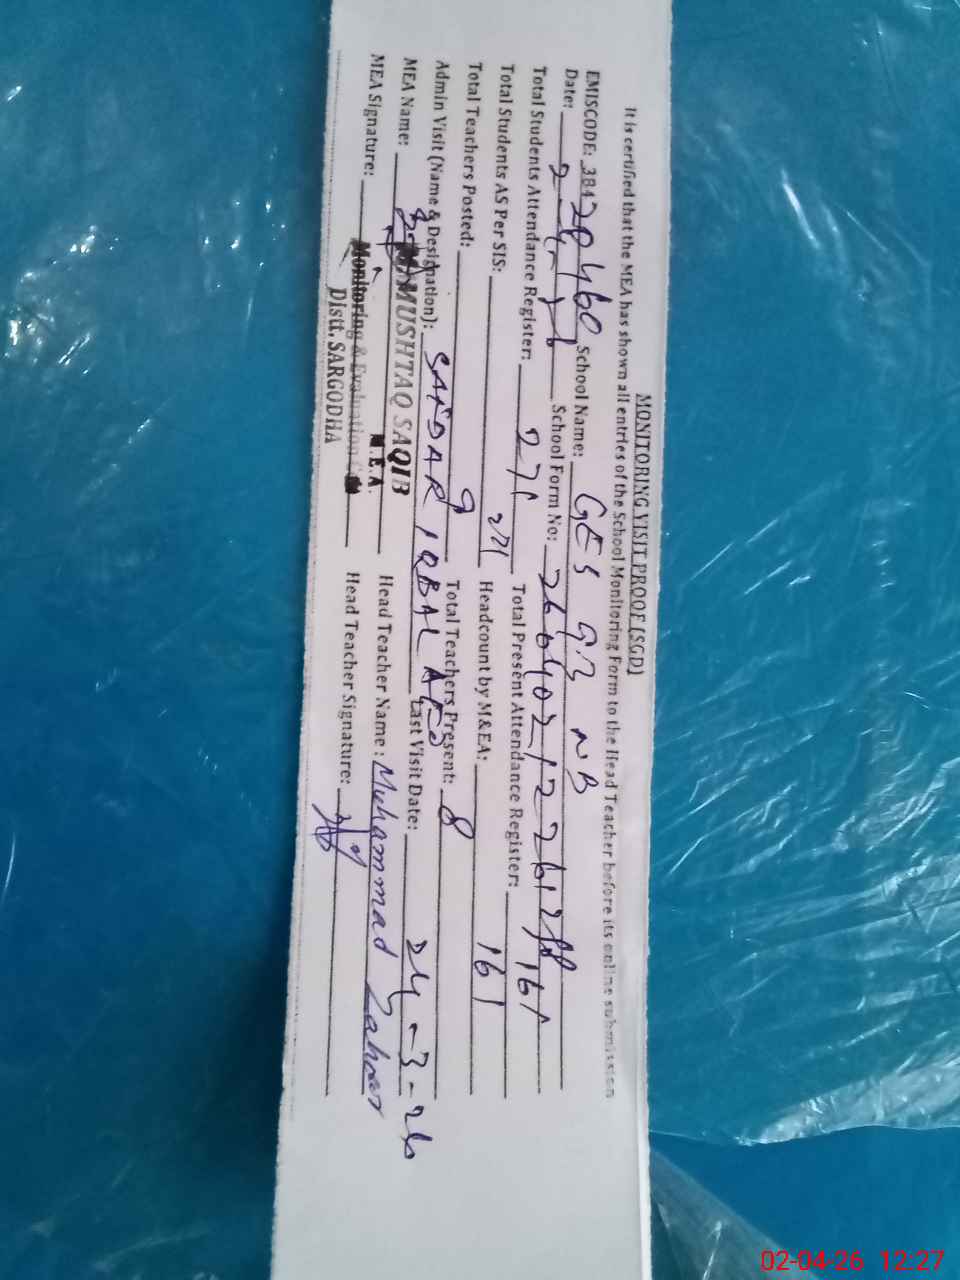 MONITORING VISIT PROOF (SGD)
It is certified that the MEA has shown all entries of the School Monitoring Form to the Head Teacher before its online submission
EMISCODE: 38420460 School Name: GES 9B NB
Date: School Form No:
Total Students Attendance Register: 271 Total Present Attendance Register: 161
Total Students AS Per SIS: 271 Headcount by M&EA: 161
Total Teachers Posted: 9 Total Teachers Present: 8
Admin Visit (Name & Designation): SAFDAR IQBAL AEO Last Visit Date: 24-3-26
MEA Name: MUSHTAQ SAQIB Head Teacher Name: Muhammad Zaheer
M.E.A.
MEA Signature: Monitoring & Evaluation Head Teacher Signature:
Distt. SARGODHA
02-04-26 12:27